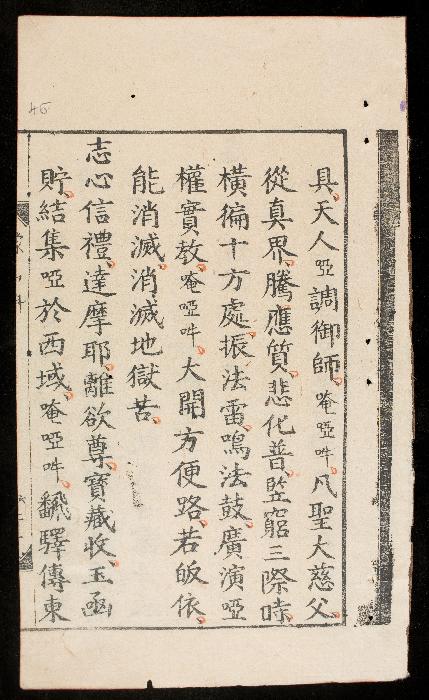 具天人啞調御師唵啞吽凡聖大慈父
從真界騰應質悲化普竪窮三際時
橫徧十方處振法雷鳴法鼓廣演啞
權實教唵啞吽大開方便路若皈依
能消滅消滅地獄苦
志心信禮達摩耶離欲尊寶藏收玉函
貯結集啞於西域唵啞吽飜驛傳東
46